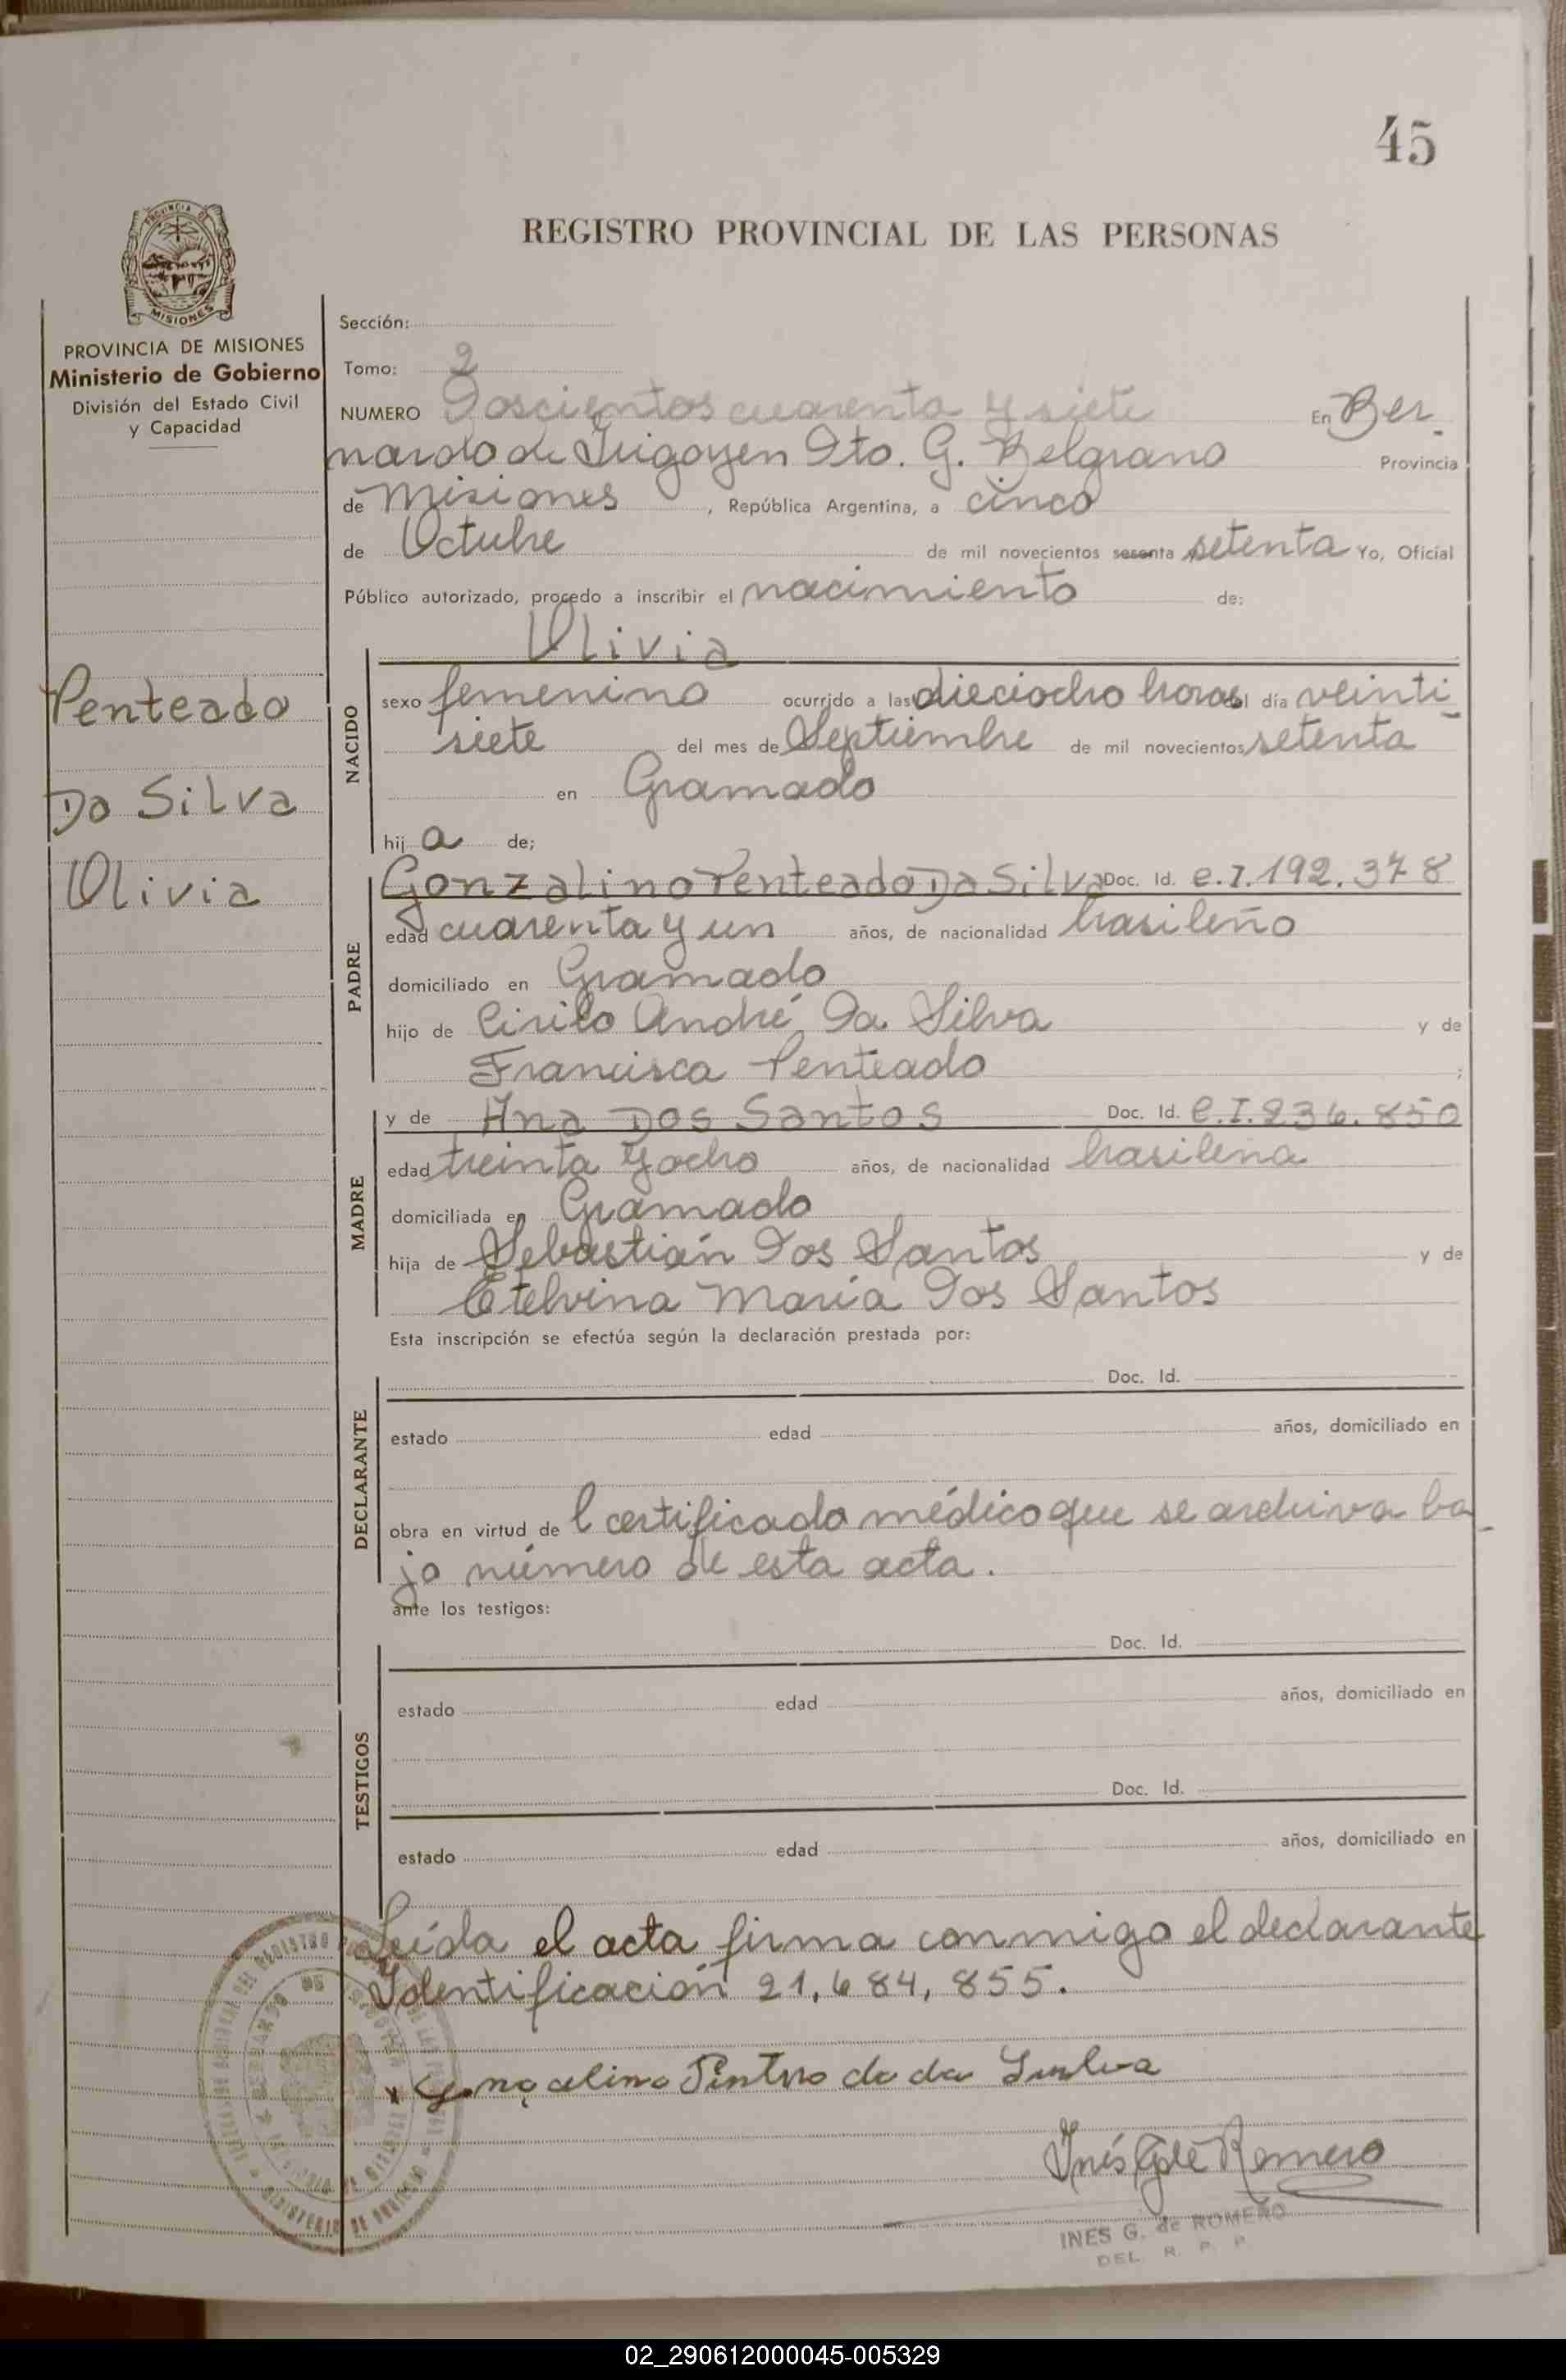 45
REGISTRO PROVINCIAL DE LAS PERSONAS
PROVINCIA DE
MISIONES
PROVINCIA DE MISIONES
Ministerio de Gobierno
División del Estado Civil
y Capacidad
Penteado
Da Silva
Olivia
Sección:
Tomo: 2
NUMERO Doscientos cuarenta y siete En Ber
nardo de Irigoyen Dto. G. Belgrano Provincia
de Misiones, República Argentina, a cinco
de Octubre de mil novecientos sesenta setenta Yo, Oficial
Público autorizado, procedo a inscribir el nacimiento de:
Olivia
NACIDO
sexo femenino ocurrido a las dieciocho horas del día veinti
siete del mes de Septiembre de mil novecientos setenta
en Gramado
hij a de;
PADRE
Gonzalino Penteado Da Silva Doc. Id. C.I. 192.378
edad cuarenta y un años, de nacionalidad brasileño
domiciliado en Gramado
hijo de Cirilo André Da Silva y de
Francisca Penteado ;
MADRE
y de Ana Dos Santos Doc. Id. C.I. 236.850
edad treinta y ocho años, de nacionalidad brasilena
domiciliada en Gramado
hija de Sebastián Dos Santos y de
Etelvina María Dos Santos
Esta inscripción se efectúa según la declaración prestada por:
DECLARANTE
Doc. Id.
estado edad años, domiciliado en
obra en virtud de l certificado médico que se archiva ba_
jo número de esta acta.
ante los testigos:
TESTIGOS
Doc. Id.
estado edad años, domiciliado en
Doc. Id.
estado edad años, domiciliado en
Leída el acta firma conmigo el declarante
Identificación 21.684.855.
Inés G de Romero
INES G. de ROMERO
DEL R. P. P
02_290612000045-005329